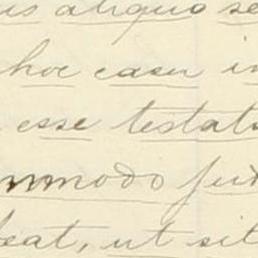 us aliquo se
hoc casu in
esse testato
mmodo jud
beat, ut sit